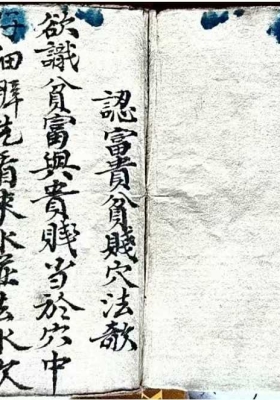 認富貴貧賤穴法歌
欲識貧富與貴賤当於穴中
仔細詳先看來水並去水次